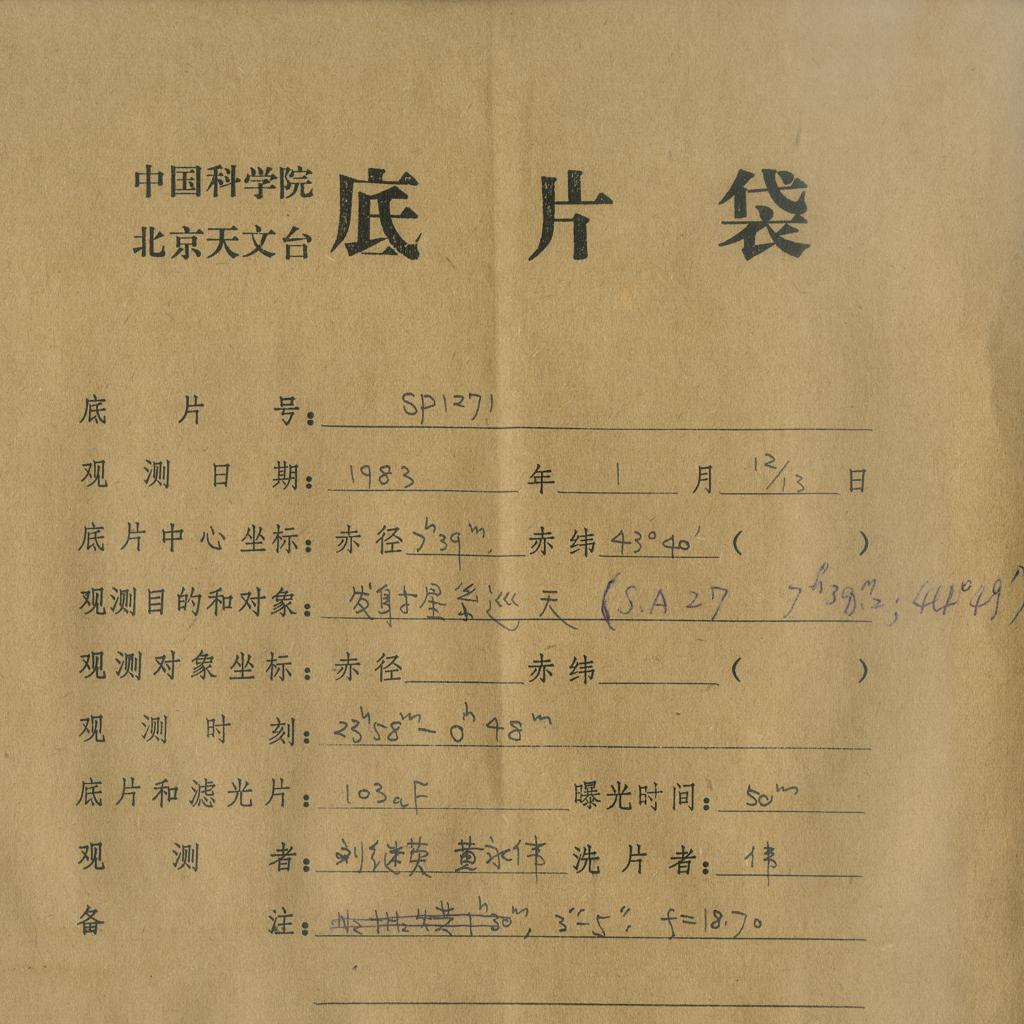 中国科学院
北京天文台 底片袋
底片号: SP1271
观测日期: 1983 年 1 月 12/13 日
底片中心坐标: 赤径 7ʰ39ᵐ. 赤纬 43°40′ ( )
观测目的和对象: 发射星系巡天 (S.A 27 7ʰ38ᵐ.2; 44°49′)
观测对象坐标: 赤径 赤纬 ( )
观测时刻: 23ʰ58ᵐ – 0ʰ48ᵐ
底片和滤光片: 103aF 曝光时间: 50ᵐ
观测者: 刘继英 黄永伟 洗片者: 伟
备注: 3″–5″; f=18.70